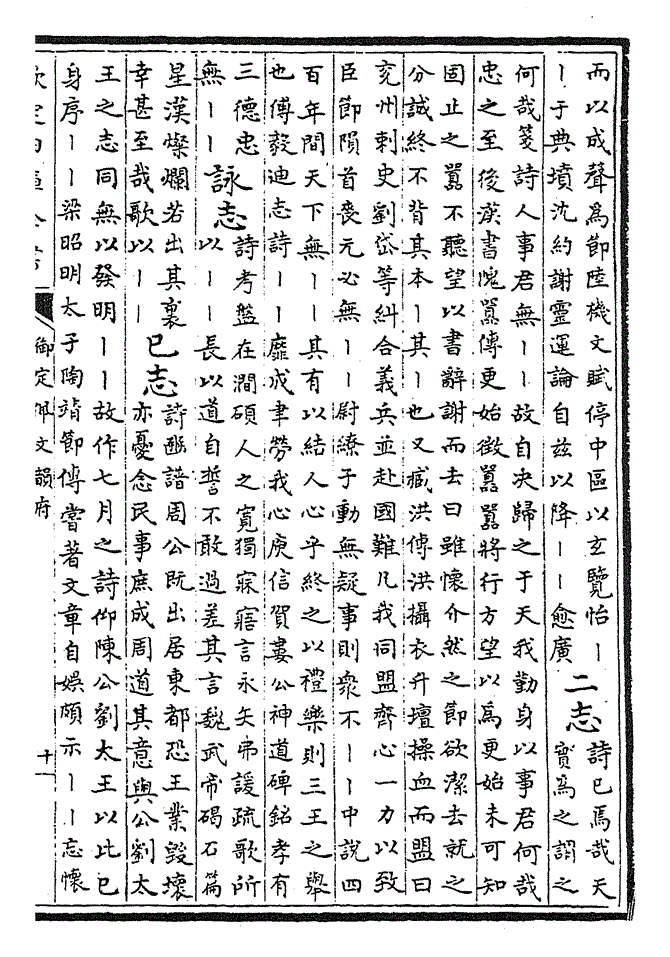 而以成聲為節陸機文賦停中區以玄覽怡丨
丨于典墳沈約謝靈運論自兹以降丨丨愈廣
二志
詩已焉哉天
實為之謂之
何哉箋詩人事君無丨丨故自决歸之于天我勤身以事君何哉
忠之至後漢書隗囂傳更始徵囂囂將行方望以為更始未可知
固止之囂不聽望以書辭謝而去曰雖懷介然之節欲潔去就之
分誠終不背其本丨其丨也又臧洪傳洪攝衣升壇操血而盟曰
兖州刺史劉岱等糾合義兵並赴國難凡我同盟齊心一力以致
臣節隕首喪元必無丨丨尉繚子動無疑事則衆不丨丨中說四
百年間天下無丨丨其有以結人心乎終之以禮樂則三王之舉
也傅毅迪志詩丨丨靡成聿勞我心庾信賀婁公神道碑銘孝有
三德忠
無丨丨
詠志
詩考盤在澗碩人之寬獨寐寤言永矢弗諼疏歌所
以丨丨長以道自誓不敢過差其言魏武帝碣石篇
星漢燦爛若出其裏
幸甚至哉歌以丨丨
已志
詩豳譜周公既出居東都恐王業毁壞
亦憂念民事庶成周道其意與公劉太
王之志同無以發明丨丨故作七月之詩仰陳公劉太王以比已
身序丨丨梁昭明太子陶靖節傳嘗著文章自娱頗示丨丨忘懷
欽定四庫全書
御定佩文韻府
十一